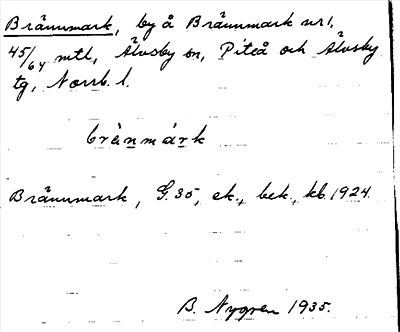 Brännmark, by å Brännmark nr 1,
45/64 mtl, Älvsby sn, Piteå och Älvsby
tg, Norrb. l.
brä̀nmárk
Brännmark, G. 35, ek., bek., kb. 1924.
B. Nygren 1935.